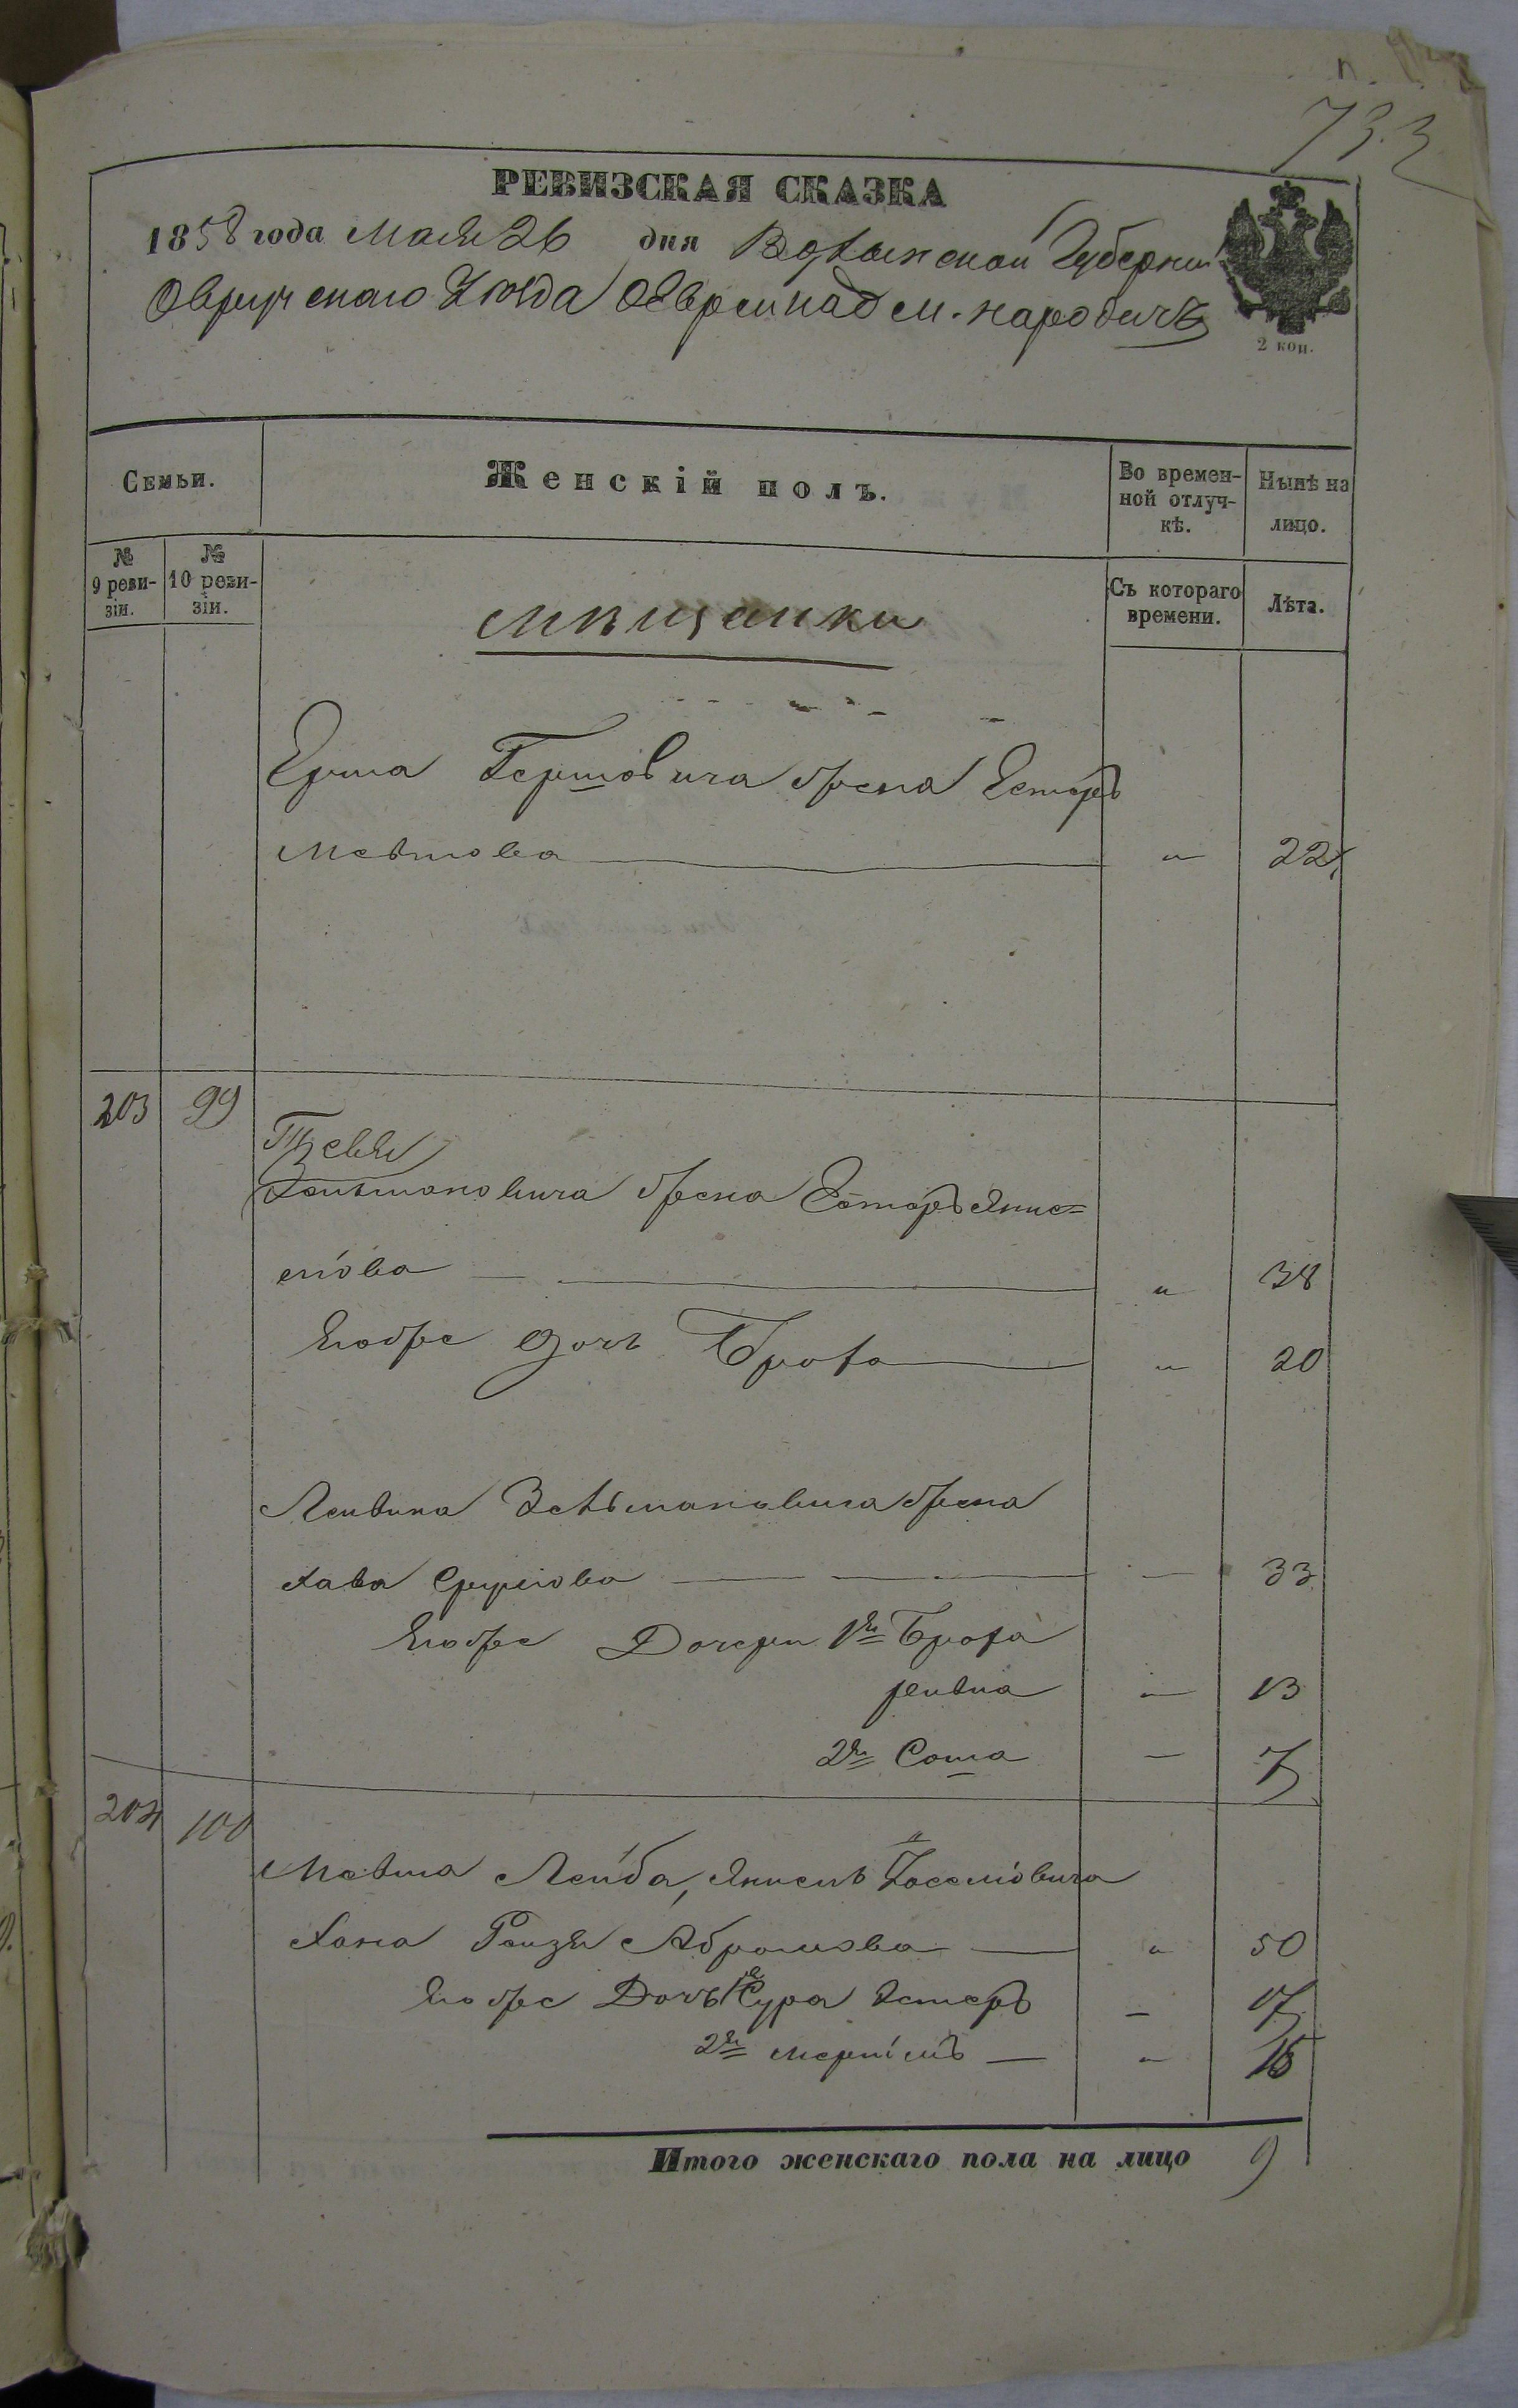 73.
РЕВИЗСКАЯ СКАЗКА
1858 года Мая 26 дня Волынской Губернии
Овручскаго Уезда О Евреикад м. народичъ
2 коп.
Семьи.
Женскій полъ.
Во времен-
ной отлуч-
кѣ.
Нынѣ на
лицо.
№
9 реви-
зіи.
№
10 реви-
зіи.
Съ котораго
времени.
Лѣта.
мѣщанки
Ерша Гершовича жена Естеръ
Мевшова " 22
203 99
Тзевя
Зельмановича жена Естеръ Янке=
лiова " 38
Егоже дочь Броха " 20
Лейвика Зельмановича жена
Хава Сруліова — 33
Егоже Дочери 1я Броха
ривка — 13
2я Соша — 7
204 100
Мевша Лейба, Янкель Іоселiовича
Хана Рейзя Абрамова — " 50
Егоже Дочь 1я Сура Эстеръ — 17
2я меріимъ — " 15
Итого женскаго пола на лицо 9